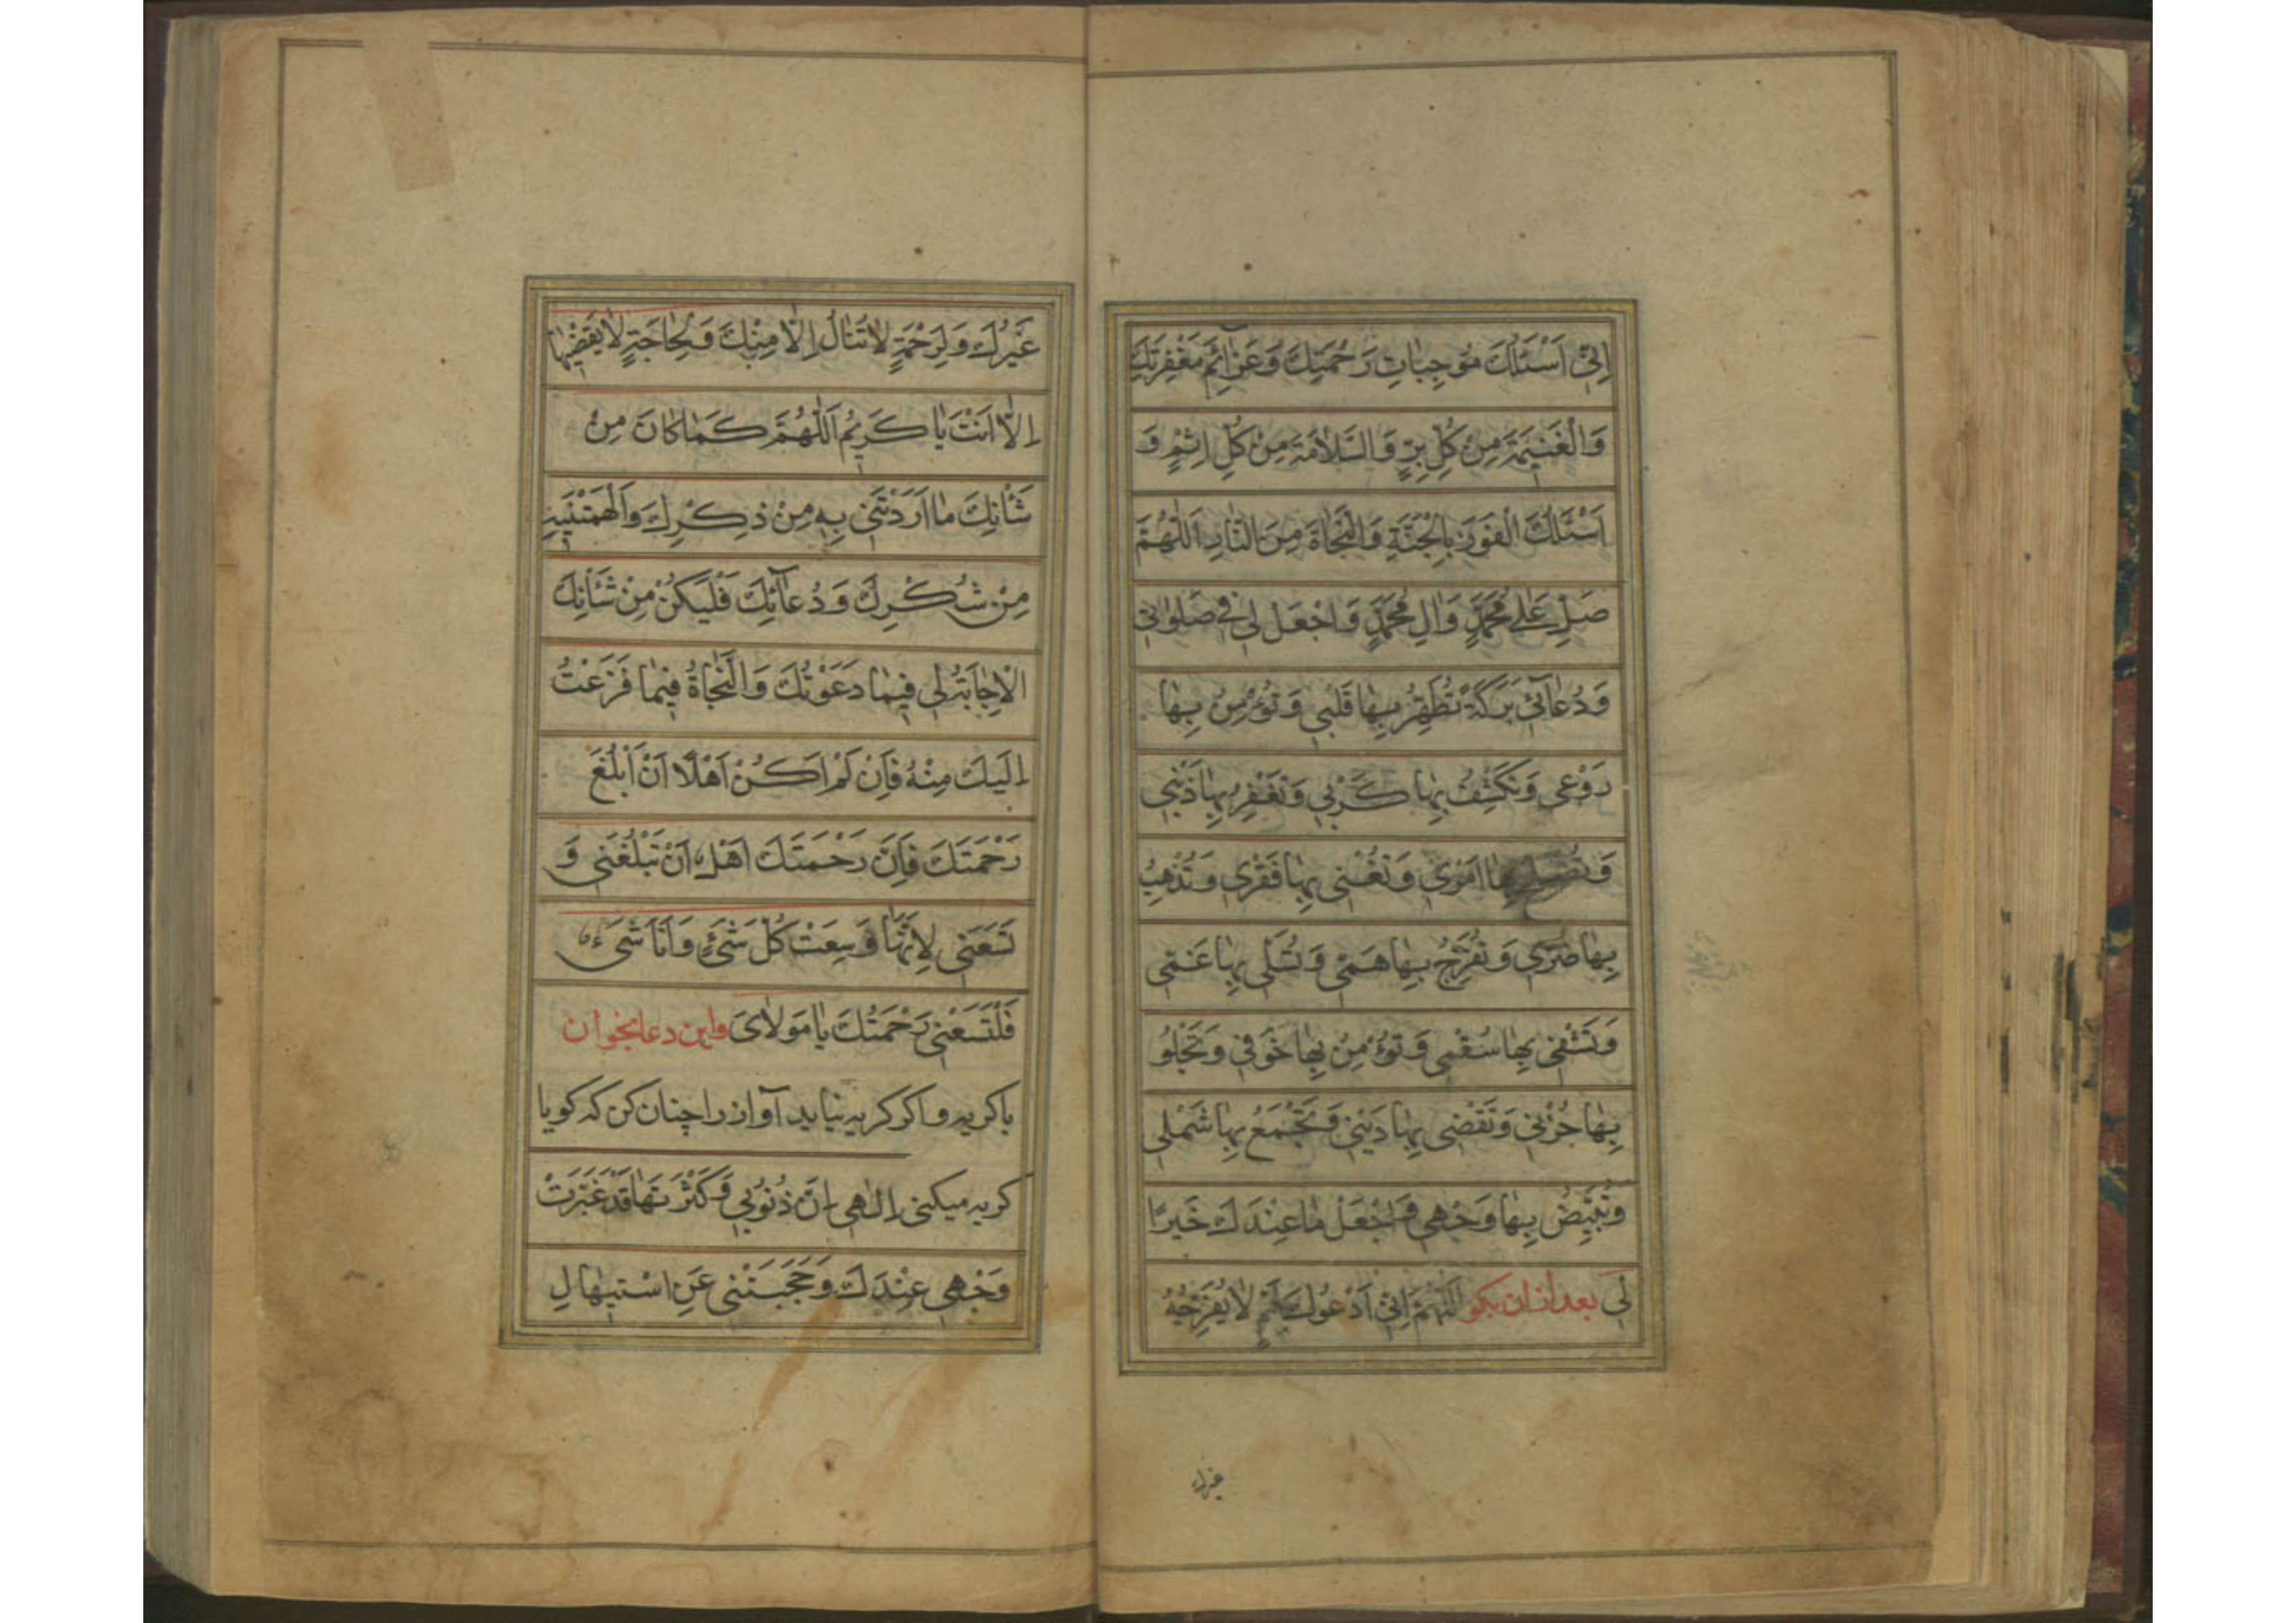 اِنّٖی اَسْئَلُكَ مُوجِبٰاتِ رَحْمَتِكَ وَعَزٰآئِمَ مَغْفِرَتِكَ
وَالْغَنیٖمَةَ مِنْ كُلِّ بِرٍّ وَالسَّلاٰمَةَ مِنْ كُلِّ اِثْمٍ وَ
اَسْئَلُكَ الْفَوْزَ بِالْجَنَّةِ وَالنَّجٰاةَ مِنَ النّٰارِ اَللّٰهُمَّ
صَلِّ عَلٰی مُحَمَّدٍ وَاٰلِ مُحَمَّدٍ وَاجْعَلْ لٖی فٖی صَلوٰاتٖی
وَدُعٰآئٖی بَرَكَةً تُطَهِّرُ بِهٰا قَلْبٖی وَتُؤْمِنُ بِهٰا
رَوْعَتٖی وَتَكْشِفُ بِهٰا كَرْبٖی وَتَغْفِرُ بِهٰا ذَنْبٖی
وَتُصْلِحُ بِهٰا اَمْرٖی وَتُغْنٖی بِهٰا فَقْرٖی وَتُذْهِبُ
بِهٰا ضُرّٖی وَتُفَرِّجُ بِهٰا هَمّٖی وَتُسَلّٖی بِهٰا غَمّٖی
وَتَشْفٖی بِهٰا سُقْمٖی وَتُؤْمِنُ بِهٰا خَوْفٖی وَتَجْلُو
بِهٰا حُزْنٖی وَتَقْضٖی بِهٰا دَیْنٖی وَتَجْمَعُ بِهٰا شَمْلٖی
وَتُبَیِّضُ بِهٰا وَجْهٖی وَاجْعَلْ مٰا عِنْدَكَ خَیْرًا
لٖی بعد از ان بكو اَللّٰهُمَّ اِنّٖی اَدْعُوكَ لِهَمٍّ لاٰ یُفَرِّجُهُ
غیرك
غَیْرُكَ وَلِرَحْمَةٍ لاٰ تُنٰالُ اِلاّٰ مِنْكَ وَلِحٰاجَةٍ لاٰ یَقْضٖیهٰا
اِلاّٰ اَنْتَ یٰا كَرٖیمُ اَللّٰهُمَّ كَمٰا كٰانَ مِنْ
شَأْنِكَ مٰا اَرَدْتَنٖی بِهٖ مِنْ ذِكْرِكَ وَاَلْهَمْتَنٖیهِ
مِنْ شُكْرِكَ وَدُعٰآئِكَ فَلْیَكُنْ مِنْ شَأْنِكَ
الْاِجٰابَةُ لٖی فٖیمٰا دَعَوْتُكَ وَالنَّجٰاةُ فٖیمٰا فَزَعْتُ
اِلَیْكَ مِنْهُ فَاِنْ لَمْ اَكُنْ اَهْلًا اَنْ اَبْلُغَ
رَحْمَتَكَ فَاِنَّ رَحْمَتَكَ اَهْلٌ اَنْ تَبْلُغَنٖی وَ
تَسَعَنٖی لِاَنَّهٰا وَسِعَتْ كُلَّ شَیْءٍ وَاَنَا شَیْءٌ
فَلْتَسَعْنٖی رَحْمَتُكَ یٰا مَوْلاٰیَ واین دعا بخوان
با كریه و اكر كریه نیاید آواز را چنان كن كه كویا
كریه میكنی اِلٰهٖی اِنَّ ذُنُوبٖی وَكَثْرَتَهٰا قَدْ غَبَّرَتْ
وَجْهٖی عِنْدَكَ وَحَجَبَتْنٖی عَنِ اسْتیٖهٰالِ